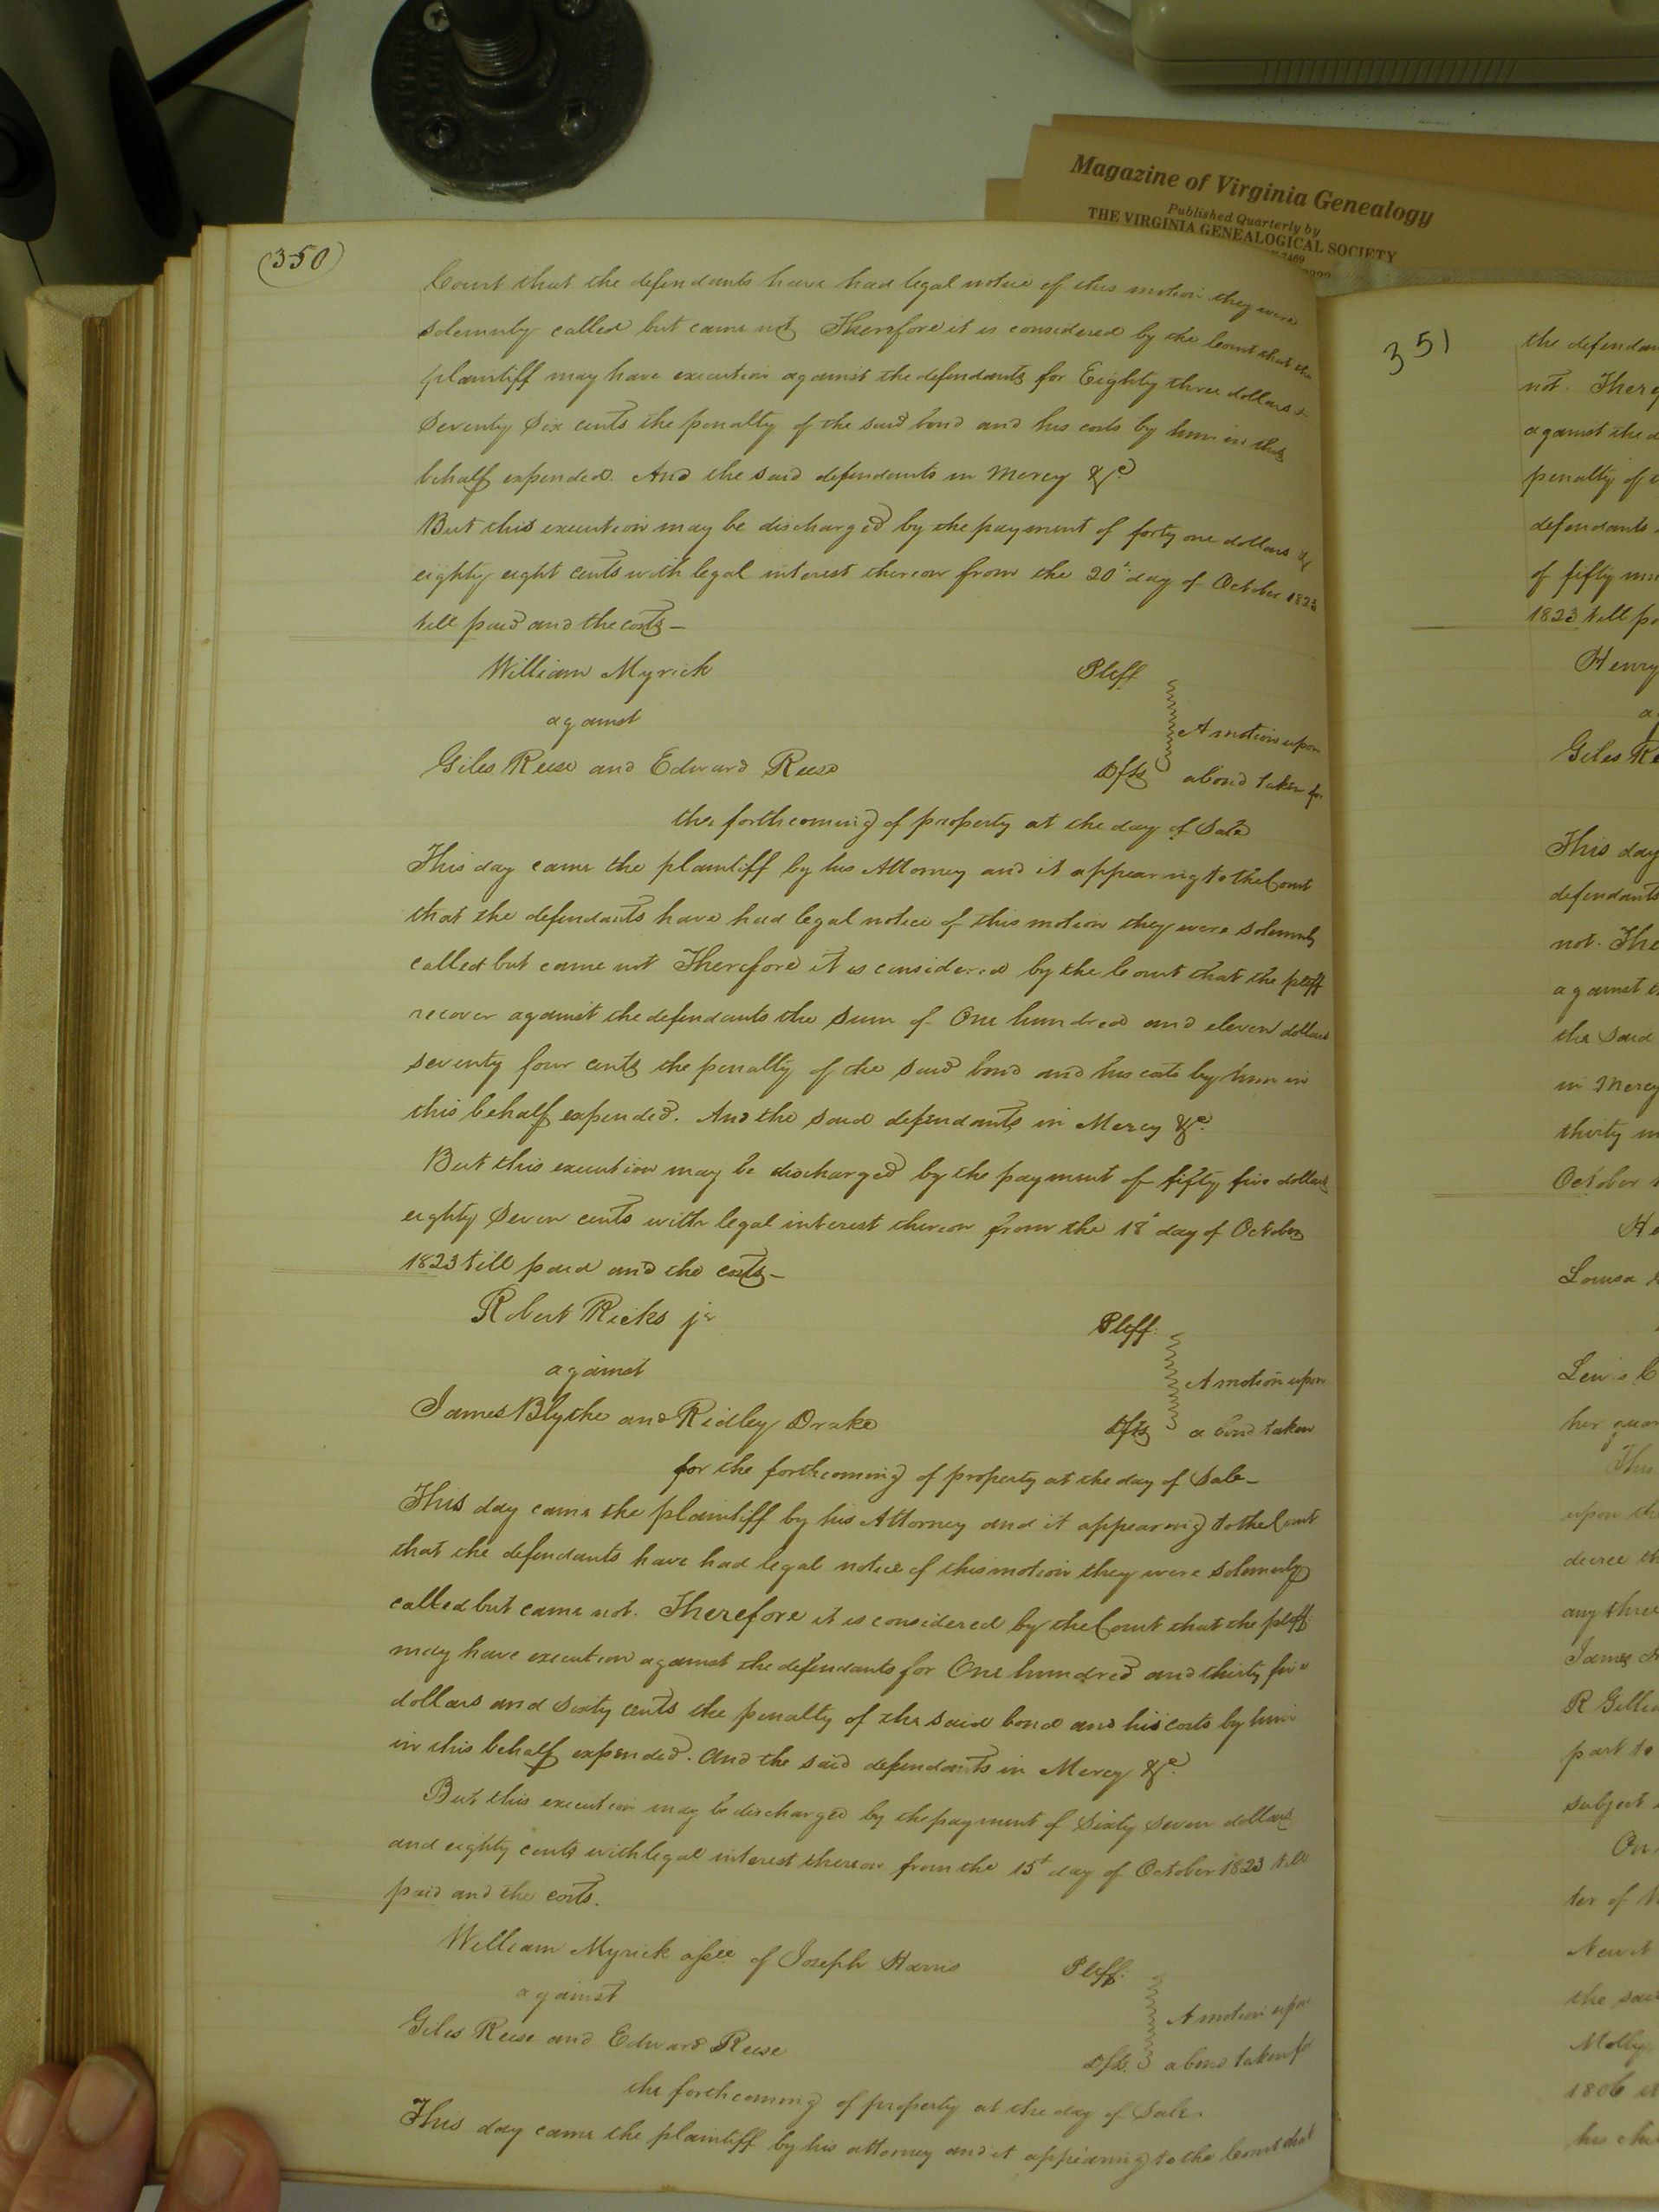 Magazine of Virginia Genealogy
Published Quarterly by
THE VIRGINIA GENEALOGICAL SOCIETY
350
Court that the defendants have had legal notice of this motion they were
solemnly called but came not Therefore it is considered by the Court that the
plaintiff may have execution against the defendants for Eighty three dollars &
Seventy Six cents the penalty of the said bond and his costs by him in this
behalf expended. And the said defendants in Mercy &c
But this execution may be discharged by the payment of forty one dollars &
eighty eight cents with legal interest thereon from the 20t day of October 1823
till paid and the costs—
William Myrick Pltff
against A motion upon
Giles Reese and Edward Reese Dfts a bond taken for
the forthcoming of property at the day of Sale
This day came the plaintiff by his Attorney and it appearing to the Court
that the defendants have had legal notice of this motion they were solemnly
called but came not Therefore it is considered by the Court that the pltff
recover against the defendants the Sum of One hundred and eleven dollars
seventy four cents the penalty of the said bond and his costs by him in
this behalf expended. And the said defendants in Mercy &c.
But this execution may be discharged by the payment of fifty five dollars
eighty Seven cents with legal interest thereon from the 18t day of October
1823 till paid and the costs—
Robert Ricks jr Pltff.
against A motion upon
James Blythe and Ridley Drake Dfts a bond taken
for the forthcoming of property at the day of Sale—
This day came the plaintiff by his Attorney and it appearing to the Court
that the defendants have had legal notice of this motion they were solemnly
called but came not. Therefore it is considered by the Court that the pltff.
may have execution against the defendants for One hundred and thirty five
dollars and Sixty cents the penalty of the said bond and his costs by him
in this behalf expended. And the said defendants in Mercy &c.
But this execution may be discharged by the payment of Sixty Seven dollars
and eighty cents with legal interest thereon from the 15t day of October 1823 till
paid and the costs.
William Myrick assee of Joseph Harris Pltff.
against A motion upon
Giles Reese and Edward Reese Dfts. a bond taken for
the forthcoming of property at the day of Sale.
This day came the plaintiff by his attorney and it appearing to the Court that
351
the defendan
not. There
against the d
penalty of
defendants
of fifty
1823 till pa
Henry
Giles Re
This day
defendants
not. The
against t
the said
in Mercy
thirty
October
Louisa
Lewis C
her guar
This
upon the
decree th
any three
James
R Gillia
part to
subject
On
ter of
the said
Molly
1806
his